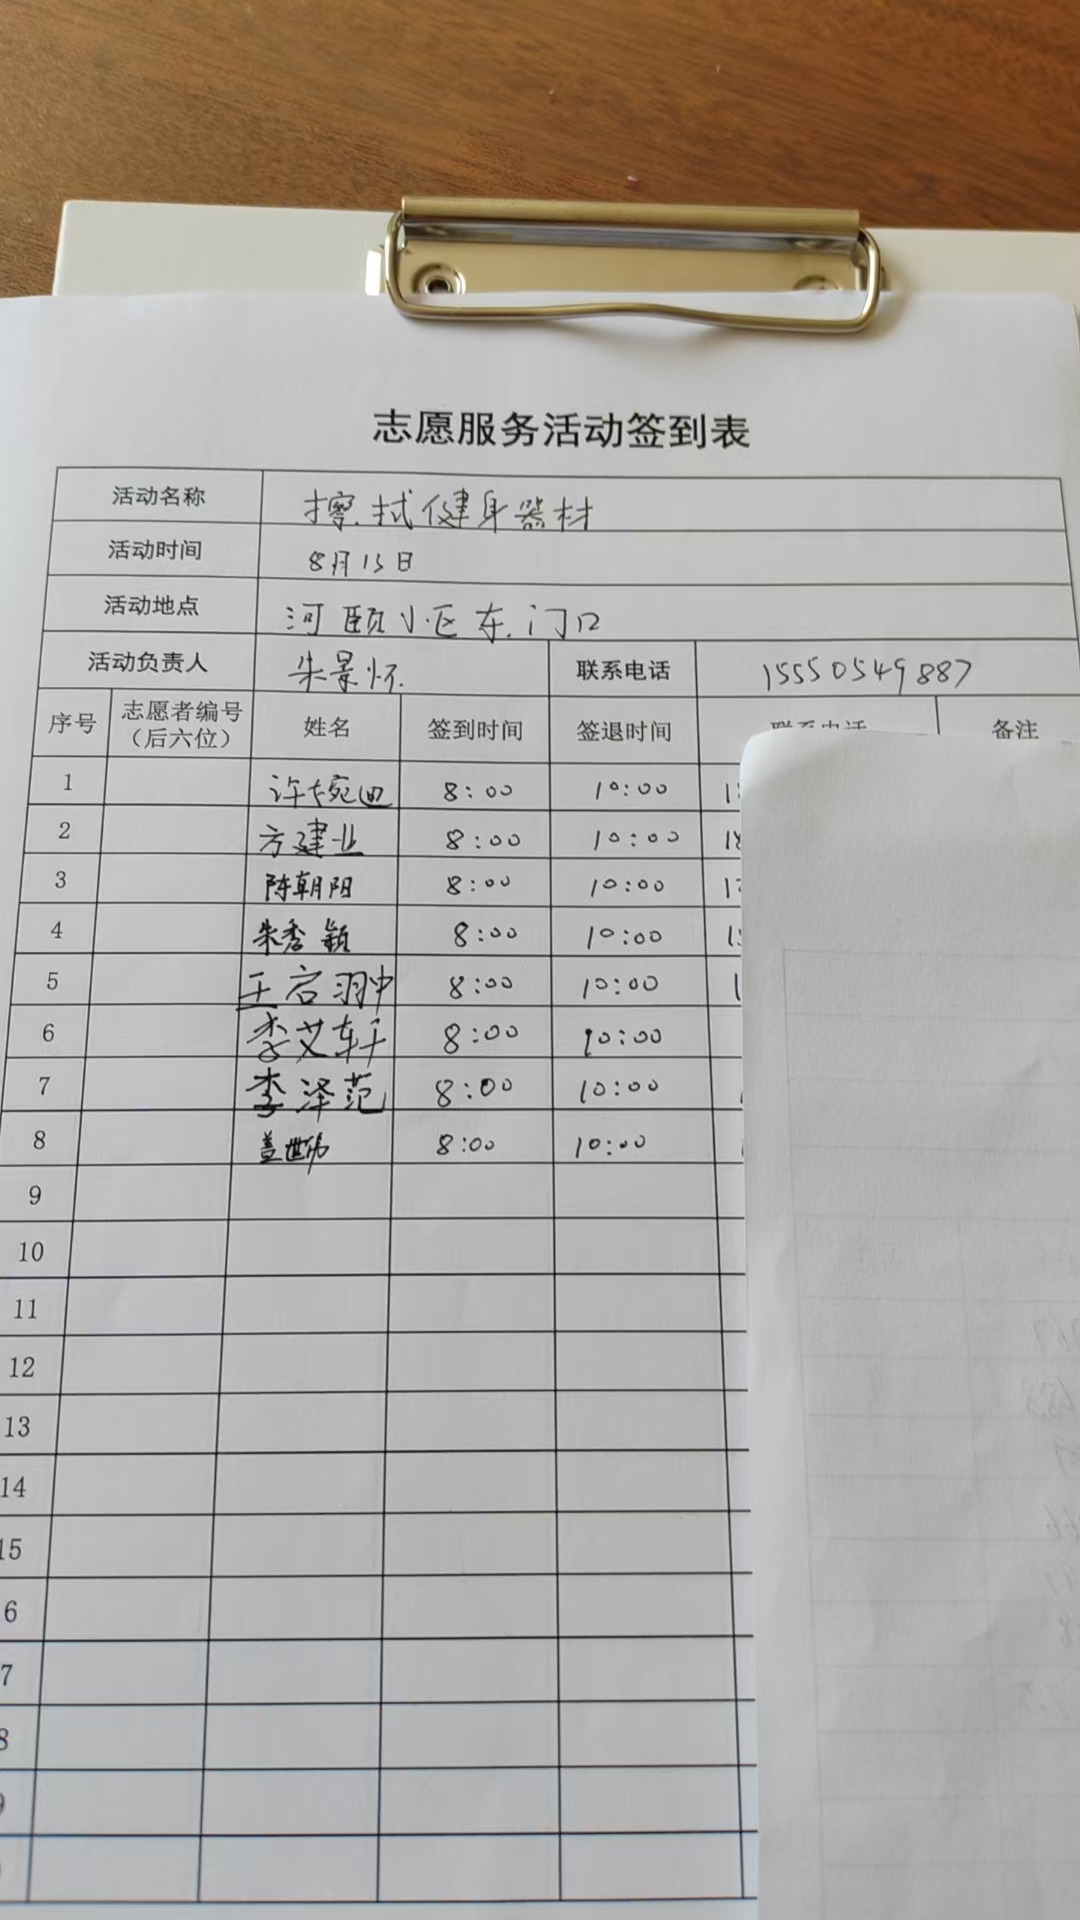 志愿服务活动签到表
活动名称 擦拭健身器材
活动时间 8月15日
活动地点 河颐小区东门口
活动负责人 朱景怀 联系电话 15550549887
序号 志愿者编号（后六位） 姓名 签到时间 签退时间 联系电话 备注
1 许婉迪 8:00 10:00 1
2 方建业 8:00 10:00 18
3 陈朝阳 8:00 10:00 17
4 朱秀颖 8:00 10:00 15
5 王启翀 8:00 10:00 1
6 李艾轩 8:00 10:00
7 李泽范 8:00 10:00
8 盖世伟 8:00 10:00
9
10
11
12
13
14
15
6
7
8
9